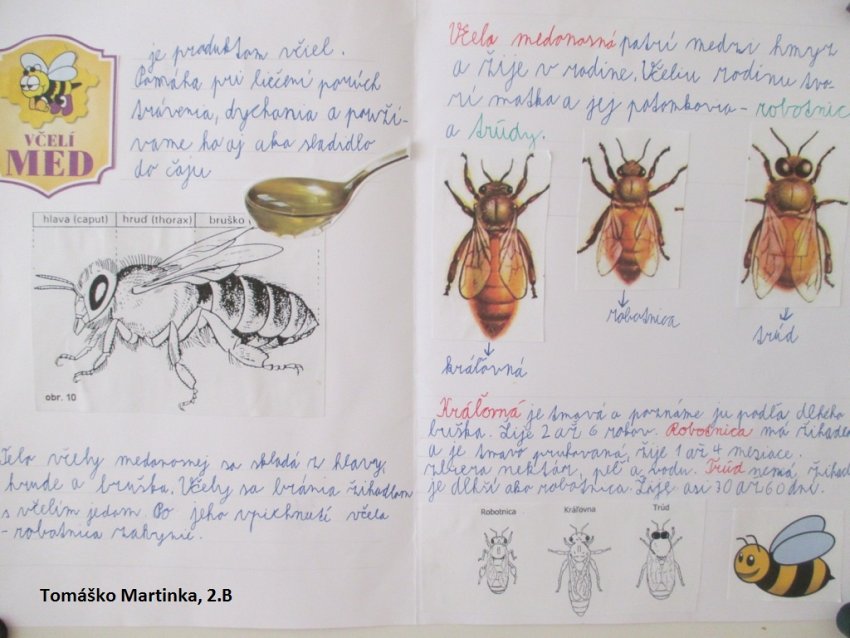 VČELÍ
MED
je produktom včiel.
Pomáha pri liečení porúch
trávenia, dýchania a použí-
vame ho aj ako sladidlo
do čaju
hlava (caput) hruď (thorax) bruško
obr. 10
Telo včely medonosnej sa skladá z hlavy,
hrude a bruška. Včely sa bránia žihadlom
s včelím jedom. Po jeho vpichnutí včela
- robotnica zahynie.
Tomáško Martinka, 2.B
Včela medonosná patrí medzi hmyz
a žije v rodine. Včeliu rodinu tvo-
rí matka a jej potomkovia - robotnice
a trúdy.
kráľovná
robotnica
trúd
Kráľovná je tmavá a poznáme ju podľa dlhého
bruška. Žije 2 až 6 rokov. Robotnica má žihadlo
a je tmavo pruhovaná, žije 1 až 4 mesiace.
zbiera nektár, peľ a vodu. Trúd nemá žihadlo
je dlhší ako robotnica. Žije asi 30 až 60 dní.
Robotnica Kráľovna Trúd